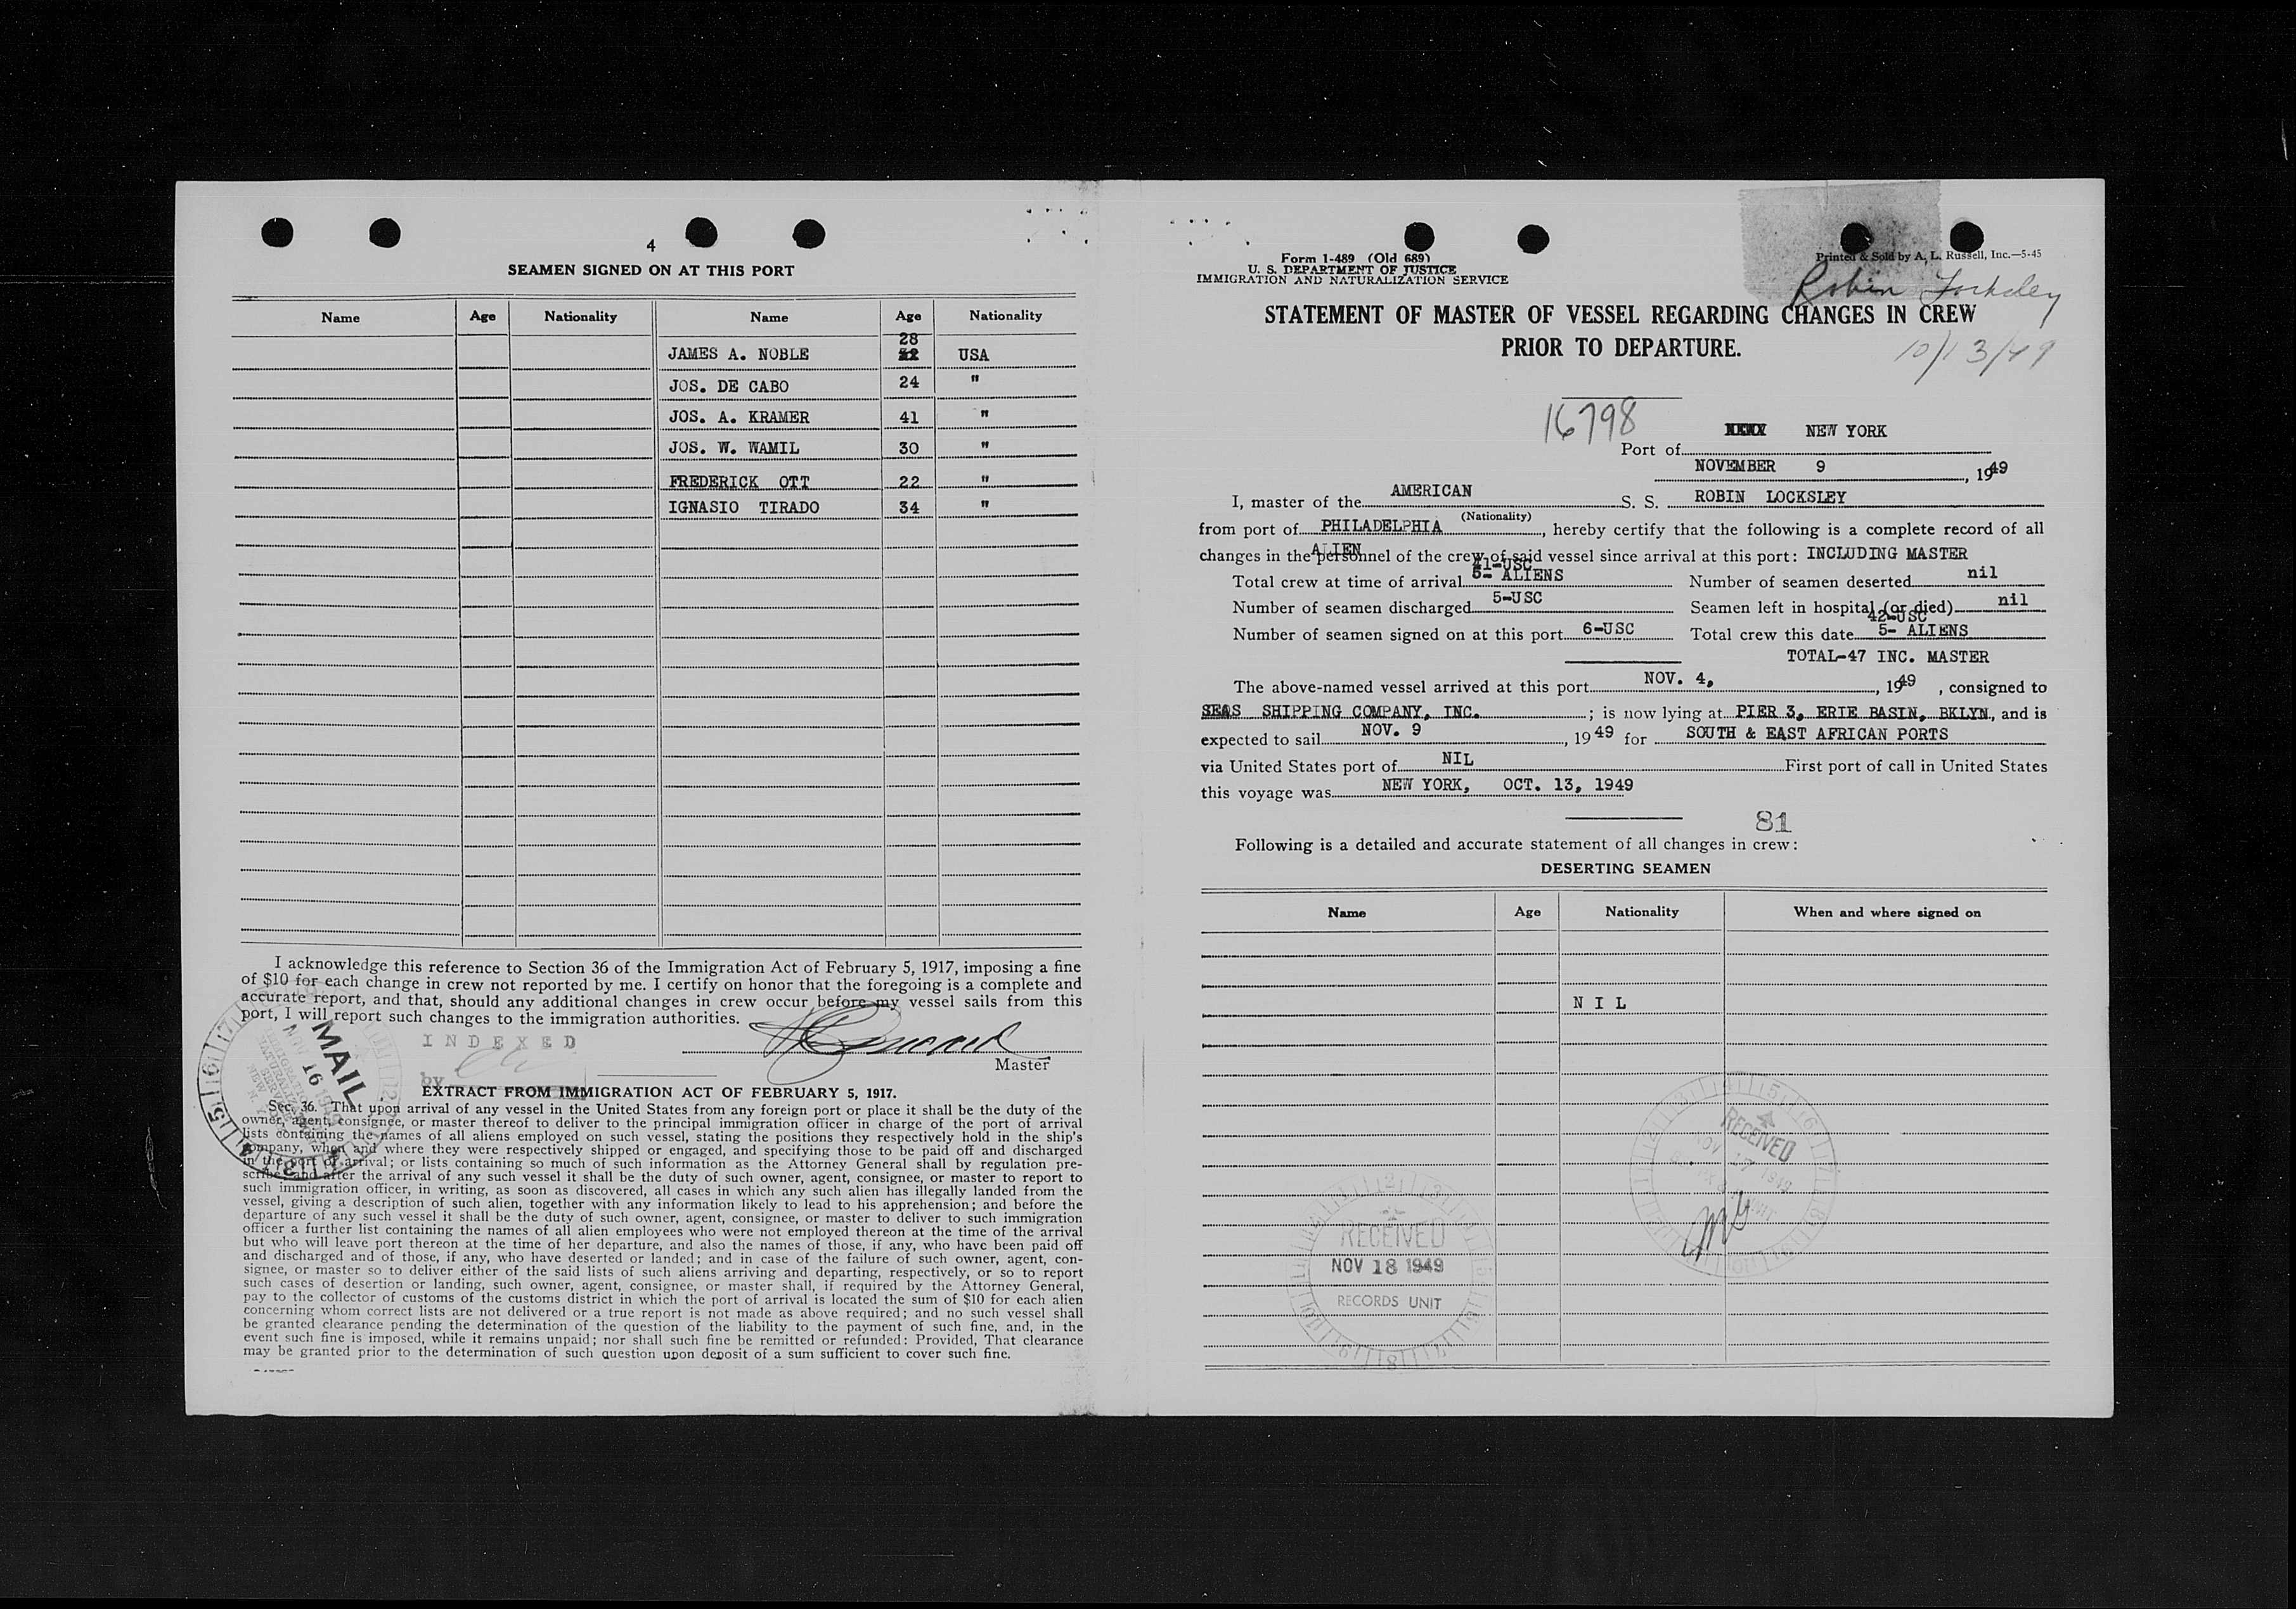 4
SEAMEN SIGNED ON AT THIS PORT
Name Age Nationality Name Age Nationality
28
JAMES A. NOBLE USA
JOS. DE CABO 24 "
JOS. A. KRAMER 41 "
JOS. W. WAMIL 30 "
FREDERICK OTT 22 "
IGNASIO TIRADO 34 "
I acknowledge this reference to Section 36 of the Immigration Act of February 5, 1917, imposing a fine
of $10 for each change in crew not reported by me. I certify on honor that the foregoing is a complete and
accurate report, and that, should any additional changes in crew occur before my vessel sails from this
port, I will report such changes to the immigration authorities.
INDEXED
by
Master
MAIL
16
EXTRACT FROM IMMIGRATION ACT OF FEBRUARY 5, 1917.
Sec. 36. That upon arrival of any vessel in the United States from any foreign port or place it shall be the duty of the
owner, agent, consignee, or master thereof to deliver to the principal immigration officer in charge of the port of arrival
lists containing the names of all aliens employed on such vessel, stating the positions they respectively hold in the ship's
company, when and where they were respectively shipped or engaged, and specifying those to be paid off and discharged
in the port of arrival; or lists containing so much of such information as the Attorney General shall by regulation pre-
scribe; and after the arrival of any such vessel it shall be the duty of such owner, agent, consignee, or master to report to
such immigration officer, in writing, as soon as discovered, all cases in which any such alien has illegally landed from the
vessel, giving a description of such alien, together with any information likely to lead to his apprehension; and before the
departure of any such vessel it shall be the duty of such owner, agent, consignee, or master to deliver to such immigration
officer a further list containing the names of all alien employees who were not employed thereon at the time of the arrival
but who will leave port thereon at the time of her departure, and also the names of those, if any, who have been paid off
and discharged and of those, if any, who have deserted or landed; and in case of the failure of such owner, agent, con-
signee, or master so to deliver either of the said lists of such aliens arriving and departing, respectively, or so to report
such cases of desertion or landing, such owner, agent, consignee, or master shall, if required by the Attorney General,
pay to the collector of customs of the customs district in which the port of arrival is located the sum of $10 for each alien
concerning whom correct lists are not delivered or a true report is not made as above required; and no such vessel shall
be granted clearance pending the determination of the question of the liability to the payment of such fine, and, in the
event such fine is imposed, while it remains unpaid; nor shall such fine be remitted or refunded: Provided, That clearance
may be granted prior to the determination of such question upon deposit of a sum sufficient to cover such fine.
Form 1-489 (Old 689)
U. S. DEPARTMENT OF JUSTICE
IMMIGRATION AND NATURALIZATION SERVICE
Printed & Sold by A. L. Russell, Inc.—5-45
Robin Locksley
STATEMENT OF MASTER OF VESSEL REGARDING CHANGES IN CREW
PRIOR TO DEPARTURE.
10/13/49
16798
Port of NEW YORK
NOVEMBER 9, 1949
I, master of the AMERICAN S. S. ROBIN LOCKSLEY
(Nationality)
from port of PHILADELPHIA, hereby certify that the following is a complete record of all
ALIEN
changes in the personnel of the crew of said vessel since arrival at this port: INCLUDING MASTER
41-USC
Total crew at time of arrival 5- ALIENS Number of seamen deserted nil
Number of seamen discharged 5-USC Seamen left in hospital (or died) nil
42-USC
Number of seamen signed on at this port 6-USC Total crew this date 5- ALIENS
TOTAL-47 INC. MASTER
The above-named vessel arrived at this port NOV. 4, 1949, consigned to
SEAS SHIPPING COMPANY, INC.; is now lying at PIER 3, ERIE BASIN, BKLYN, and is
expected to sail NOV. 9, 1949 for SOUTH & EAST AFRICAN PORTS
via United States port of NIL First port of call in United States
this voyage was NEW YORK, OCT. 13, 1949
81
Following is a detailed and accurate statement of all changes in crew:
DESERTING SEAMEN
Name Age Nationality When and where signed on
N I L
RECEIVED
NOV 17 1949
RECEIVED
NOV 18 1949
RECORDS UNIT